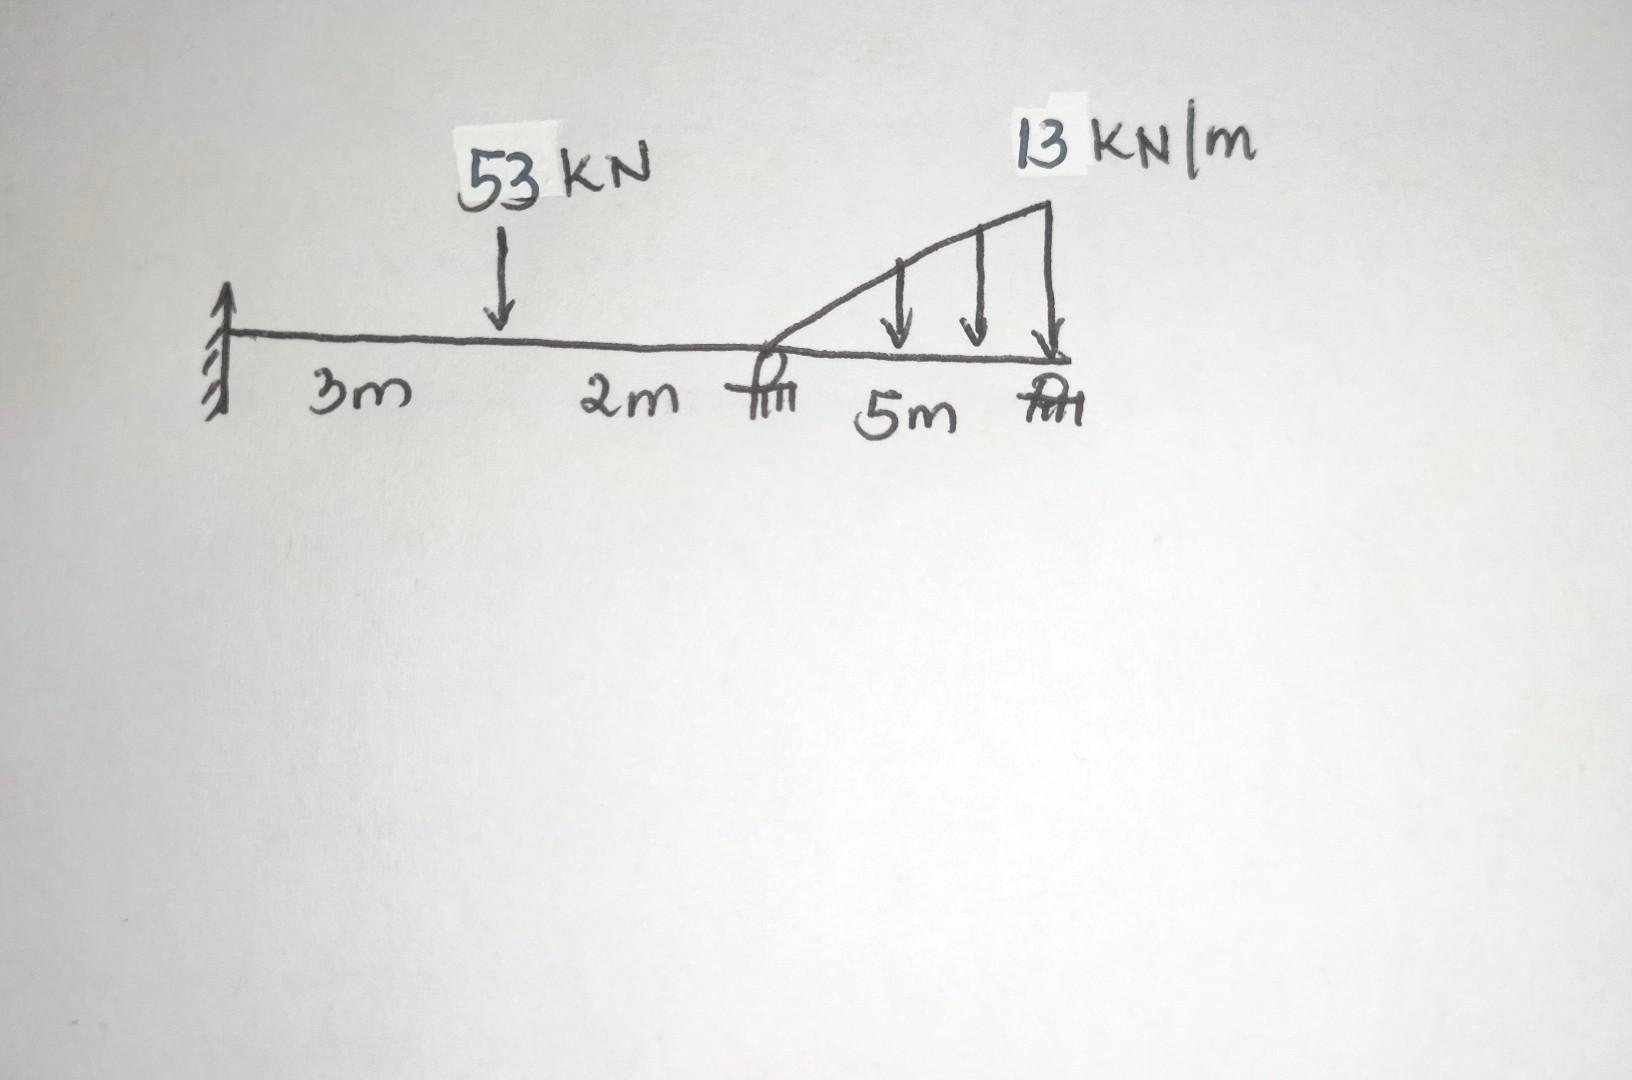 53 KN
13 KN/m
3m
2m
5m